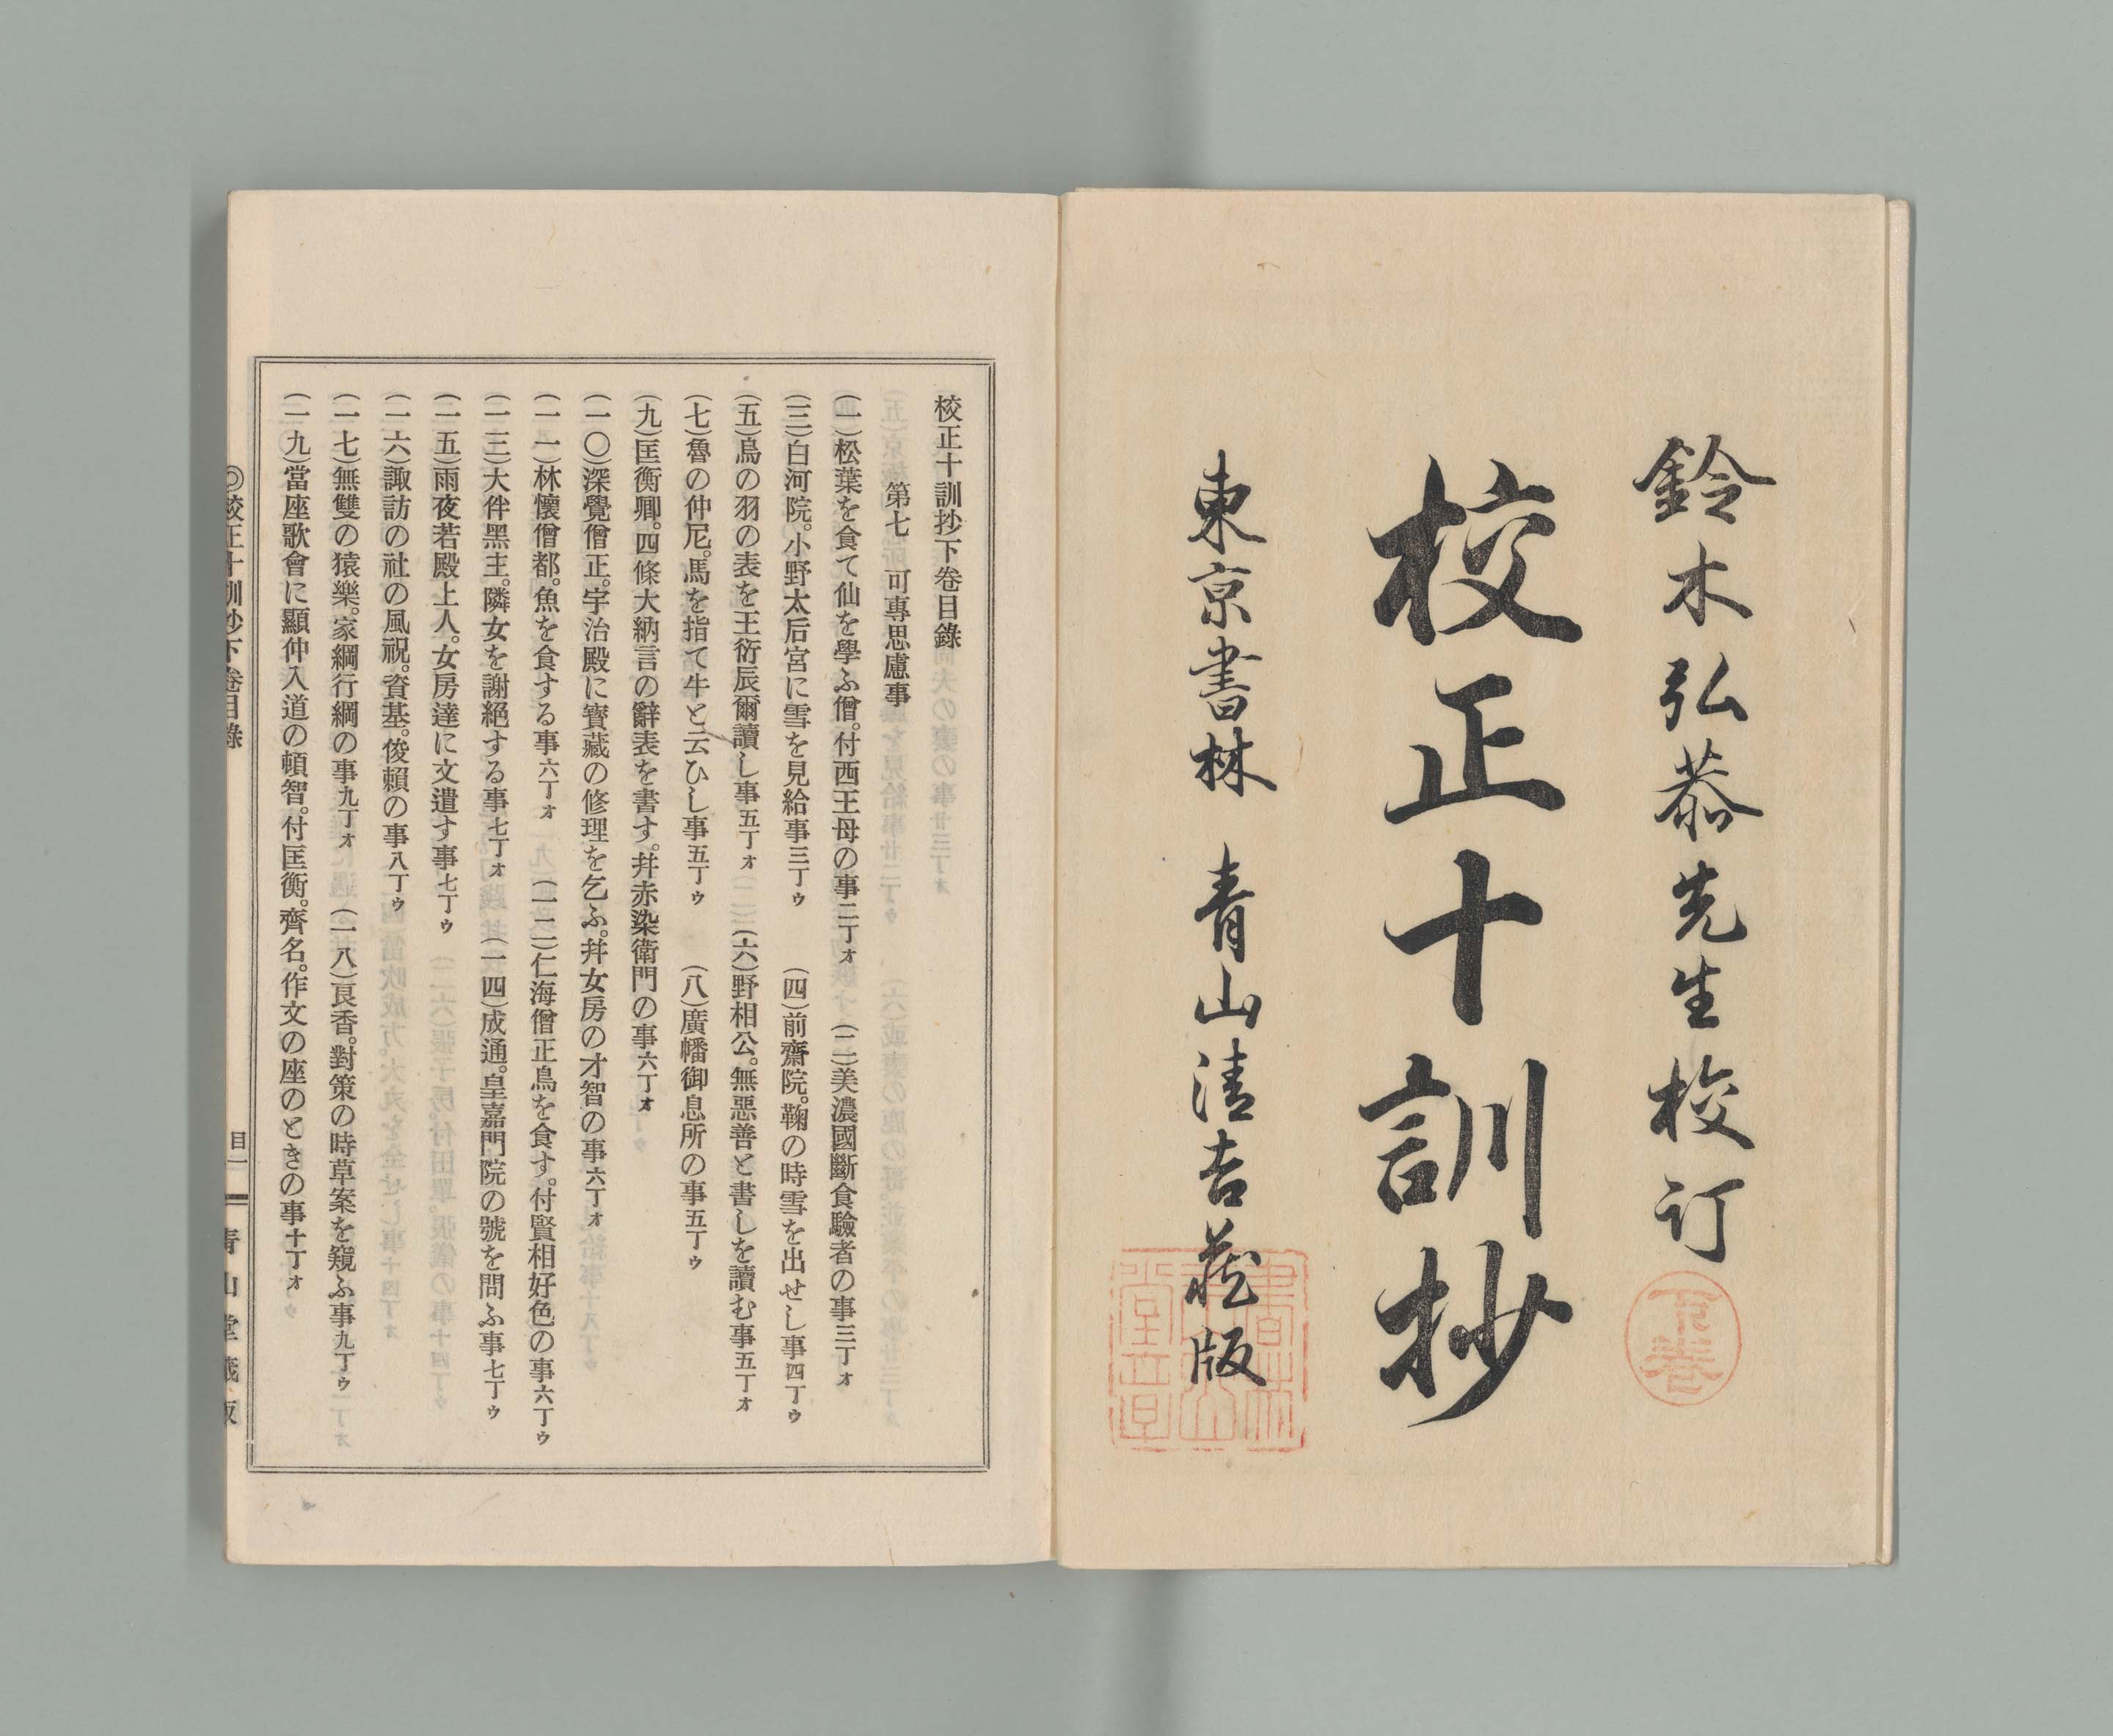 鈴木弘恭先生校订
下卷
校正十訓抄
東京書林 青山淸吉藏版
校正十訓抄下卷目錄
第七 可專思慮事
(一)松葉を食て仙を學ふ僧。付西王母の事二丁ォ (二)美濃國斷食驗者の事三丁ォ
(三)白河院。小野太后宮に雪を見給事三丁ゥ (四)前齋院。鞠の時雪を出せし事四丁ゥ
(五)烏の羽の表を王衍辰爾讀し事五丁ォ (六)野相公。無惡善と書しを讀む事五丁ォ
(七)魯の仲尼。馬を指て牛と云ひし事五丁ゥ (八)廣幡御息所の事五丁ゥ
(九)匡衡卿。四條大納言の辭表を書す。幷赤染衛門の事六丁ォ
(一〇)深覺僧正。宇治殿に寳藏の修理を乞ふ。幷女房の才智の事六丁ォ
(一一)林懷僧都。魚を食する事六丁ォ (一二)仁海僧正鳥を食す。付賢相好色の事六丁ゥ
(一三)大伴黑主。隣女を謝絕する事七丁ォ (一四)成通。皇嘉門院の號を問ふ事七丁ゥ
(一五)雨夜若殿上人。女房達に文遣す事七丁ゥ
(一六)諏訪の社の風祝。資基。俊賴の事八丁ゥ
(一七)無雙の猿樂。家綱行綱の事九丁ォ (一八)良香。對策の時草案を窺ふ事九丁ゥ
(一九)當座歌會に顯仲入道の頓智。付匡衡。齊名。作文の座のときの事十丁ォ
◎校正十訓抄下卷目錄 目一 靑山堂藏版